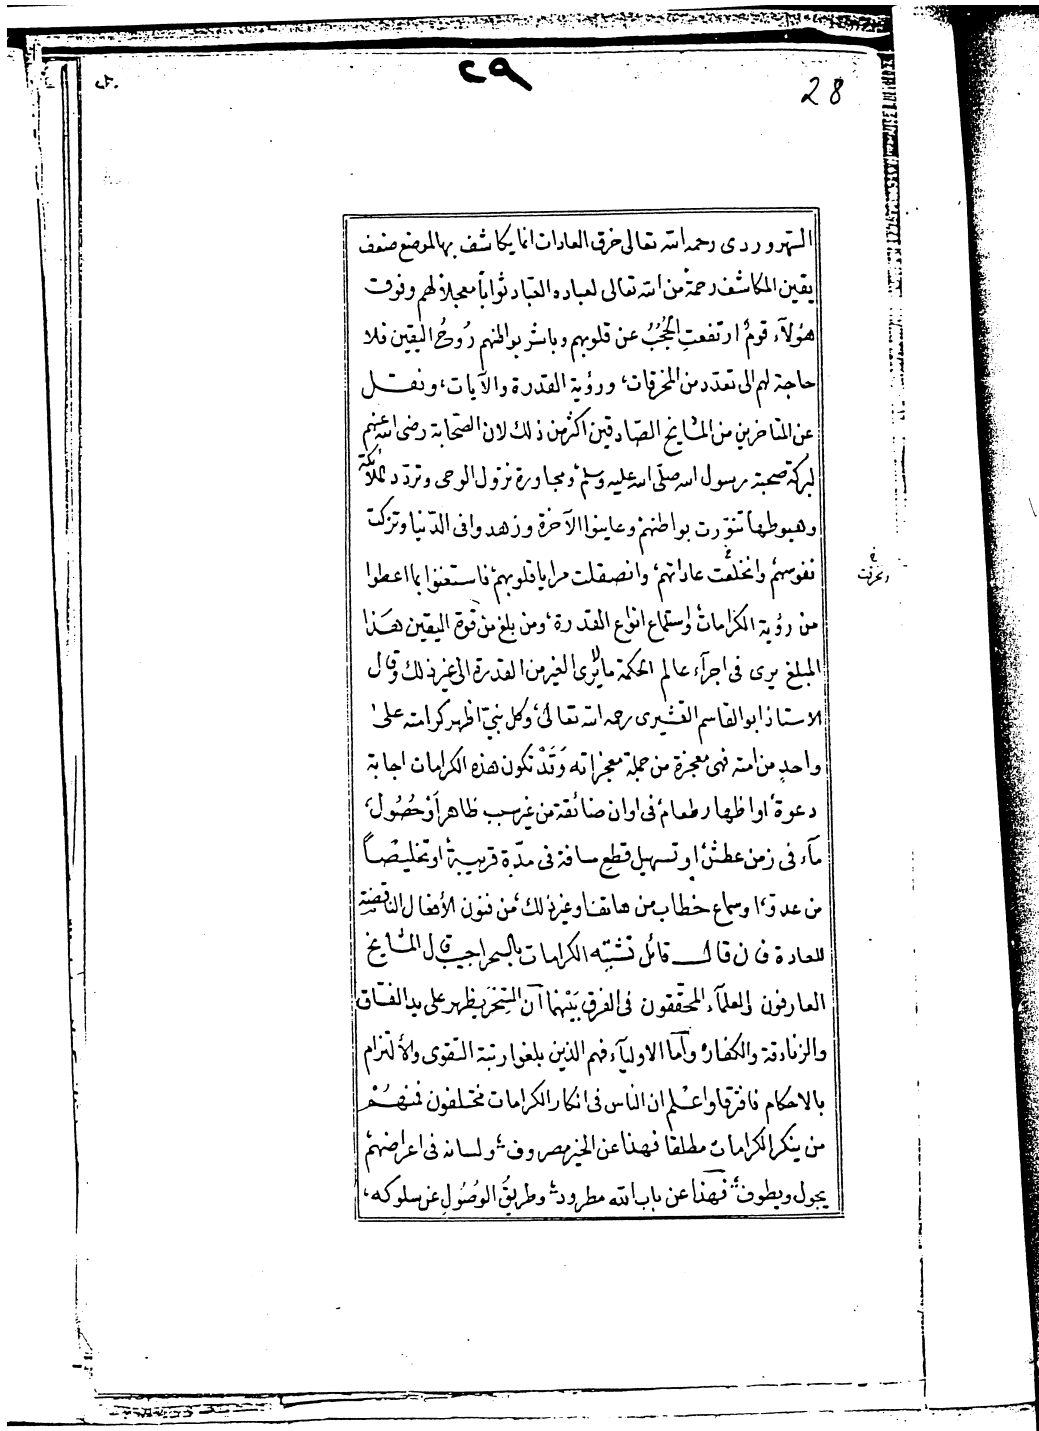 ٢٩
28
السهروردى رحمه الله تعالى خرق العادات انما يكاشف بها لموضع ضعف
يقين المكاشف رحمة من الله تعالى لعباده العباد ثواباً معجلاً لهم وفوق
هؤلآء قومٌ ارتفعتِ الحُجُبُ عن قلوبهم وباشر بواطنهم رُوحُ اليقين فلا
حاجة لهم الى تعدد من المخرقات، ورؤية القدرة والآيات، ونقل
عن المتاخرين من المشايخ الصّادقين اكثر من ذلك لان الصّحابة رضى الله عنهم
لبركة صحبة رسول الله صلّى الله عليه وسلم، ومجاورة نزول الوحى وتردّد الملائكة
وهبوطها تنوّرت بواطنهم وعاينوا الآخرة وزهدوا فى الدّنيا وتزكت
نفوسهم وانخلعت عاداتهم، وانصقلت مرايا قلوبهم، فاستغنوا بما اعطوا
من رؤية الكرامات، واستماع انواع القدرة، ومن بلغ من قوة اليقين هذا
المبلغ يرى فى اجرآء عالم الحكمة ما لا يرى الغير من القدرة الى غير ذلك وقال
الاستاذ ابو القاسم القشيرى رحمه الله تعالى، وكل نبىّ اظهر كرامته على
واحدٍ من امته فهى معجزة من جملة معجزاته وَقَدْ تكون هذه الكرامات اجابة
دعوة، او اظهار طعام، فى اوان ضائقة من غير سبب ظاهر اَوْ حُصُول،
مآء فى زمن عطش، او تسهيل قطع مسافة فى مدّة قريبة، او تخليصاً
من عدوّ، او سماع خطاب من هاتف او غير ذلك، من فنون الأفعال الناقضةِ
للعادة فان قال قائل تشبّه الكرامات بالسحر اجيب قال المشايخ
العارفون والعلمآء المحقّقون فى الفرق بَيْنَهما أن السِّحْرَ يظهر على يد الفسّاق
والزنادقة والكفار، وأما الاوليآء فهم الذين بلغوا رتبة التقوى والألتزام
بالاحكام فافترقا واعْلم ان الناس فى انكار الكرامات مختلفون فمنهُمْ
من ينكر الكرامات مطلقا فهذا عن الخير مصروف، ولسانه فى اعراضهم
يجول ويطوف، فهذا عن باب الله مطرود، وطريقُ الوُصُولِ عن سلوكه،